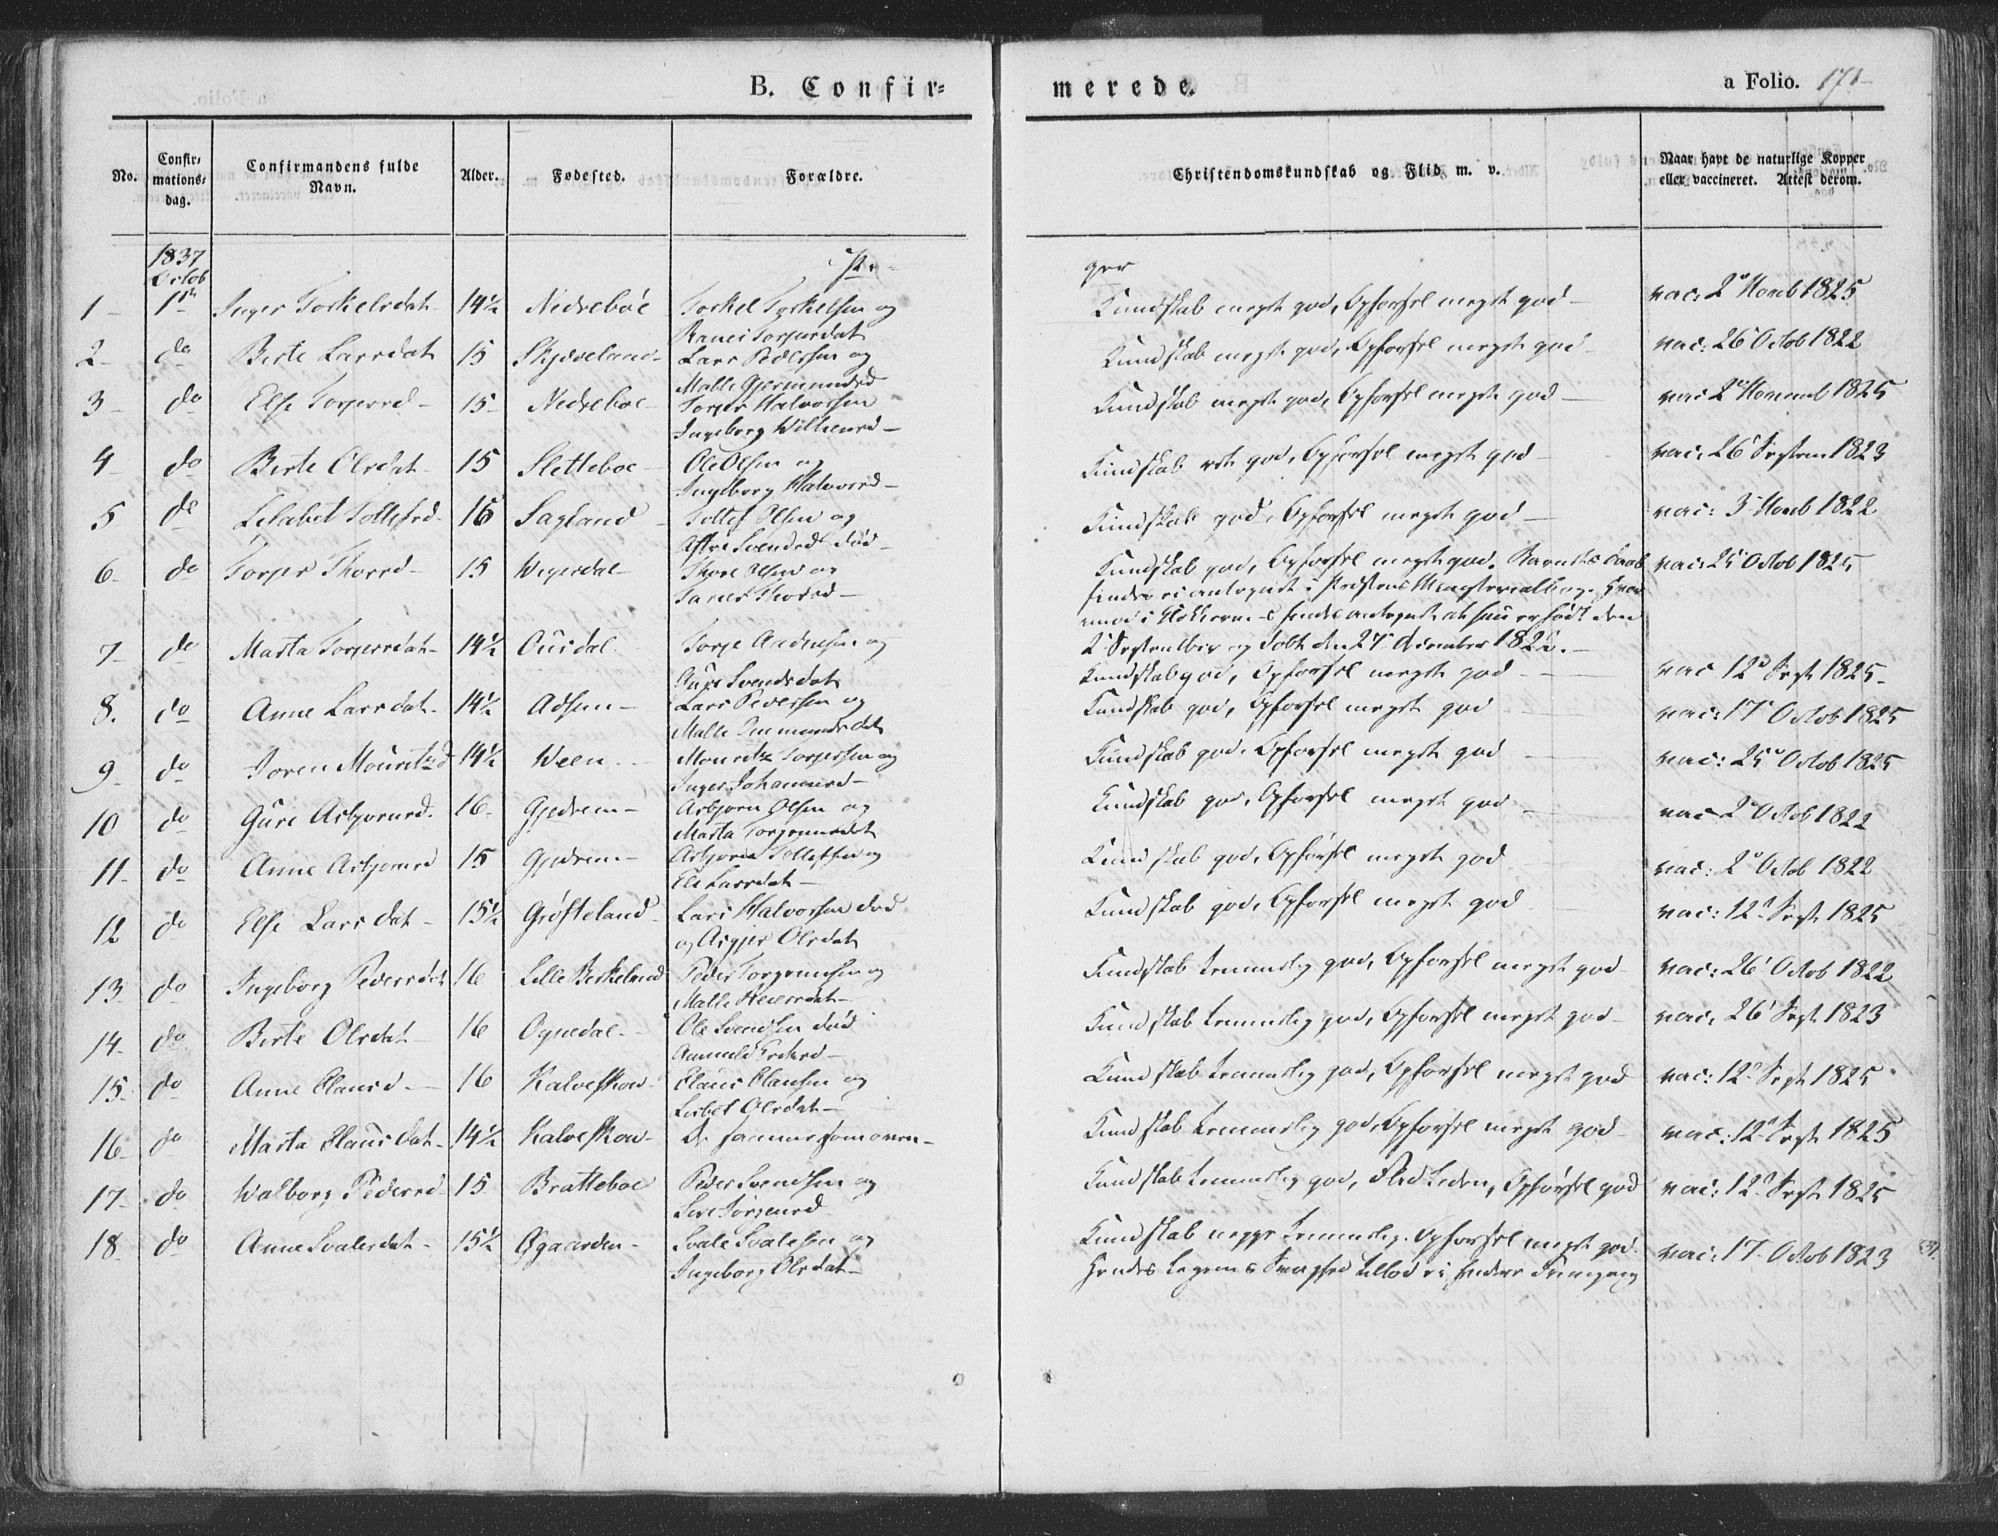 B. Confir= merede.
a Folio. 171
No. Confir= mations= dag. Confirmandens fulde Navn. Alder. Fødested. Forældre. Christendomskundskab og Flid m. v. Naar havt de naturlige Kopper eller vaccineret. Attest derom.
1837
Octob
1 1ste Inger Torkelsdat 14½ Nedreboe Torkel Torkelsen og Kundskab meget god, Opførsel meget god vac: 2 Novb 1825
2 do Birte Larsdat 15 Skjæveland Lars Pedersen og Kundskab meget god, Opførsel meget god vac: 26 Octob 1822
Malle Gjermundsd
3 do Else Torgersd 15 Nedreboe Torger Halvorsen Kundskab meget god, Opførsel meget god vac 2 Novemb 1825
Ingeborg
4 do Birte Olsdat 15 Sletteboe Ole Olsen og Kundskab ret god, Opførsel meget god vac: 26 Septem 1823
Ingeborg Halvorsd
5 do Lisabet Tollefsd 16 Sagland Tollef Olsen og Kundskab god, Opførsel meget god vac: 3 Novb 1822
Svendsd død
6 do Torger Thorsd 15 Thore Olsen og Kundskab god, Opførsel meget god. Barnets Daab vac: 25 Octob 1825
findes ei antegnet i Præstens Ministerialbog. Hvor
imod i Klokkerens findes antegnet at hun er født den
7 do Marta Torgersdat 14½ Ousdal Torge Andersen og 2 Septembr og døbt den 27 December 1822.
Svendsdat Kundskab god, Opførsel meget god vac 12 Sept 1825
8. do Anne Larsdat 14½ Adsen Lars Pedersen og Kundskab god, Opførsel meget god vac: 17 Octob 1825
Malle
9 do Joren Mouritsd 14½ Veen Mouritz Torgersen og Kundskab god, Opførsel meget god vac: 25 Octob 1825
Inger Johannesd
10 do Gure Asbjornsd. 16 Gjedrem Asbjorn Olsen og Kundskab god, Opførsel meget god vac 2 Octob 1822
Marta
11 do Anne Asbjornsd 15 Gjedrem Asbjorn Tollefsen og Kundskab god, Opførsel meget god vac: 2 Octob 1822
Eli Larsdat
12 do Else Larsdat 15½ Grøfteland Lars Halvorsen død Kundskab god, Opførsel meget god vac: 12 Sept 1825
og Asgjer Olsdat
13 do Ingeborg Pedersdat 16 Lille Birkeland Peder og Kundskab temmelig god, Opførsel meget god vac: 26 Octob 1822
Malle
14 do Birte Olsdat 16 Ognedal Ole Svendsen død Kundskab temmelig god, Opførsel meget god vac. 26 Sept 1823
15 do Anne Clausd 16 Kalveskou Claus Clausen og Kundskab temmelig god, Opførsel meget god vac: 12 Sept 1825
Lisbet Olsdat
16 do Marta Clausdat 14½ Kalveskou De samme som oven Kundskab temmelig god, Opførsel meget god vac: 12 Sept 1825
17 do Walborg Pedersd 15 Bratteboe Peder Svendsen og Kundskab temmelig god, Flid liden, Opførsel god vac: 12 Sept 1825
Siri Jorgensd
18 do Anne Svalesdat 15½ Øgaarden Svale Svalesen og Kundskab neppe temmelig. Opførsel meget god. vac: 17 Octob 1823
Ingeborg Olsdat Hendes Legems Svaghed tillod ei hendes Fremgang